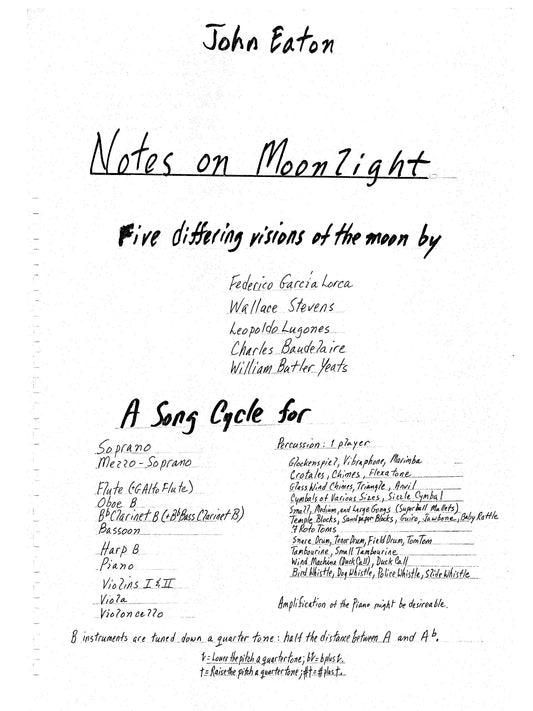 John Eaton
Notes on Moonlight
Five differing visions of the moon by
Federico García Lorca
Wallace Stevens
Leopoldo Lugones
Charles Baudelaire
William Butler Yeats
A Song Cycle for
Soprano
Mezzo-Soprano
Flute (+G Alto Flute)
Oboe B
Bb Clarinet B (+Bb Bass Clarinet B)
Bassoon
Harp B
Piano
Violins I & II
Viola
Violoncello
Percussion: 1 player
Glockenspiel, Vibraphone, Marimba
Crotales, Chimes, Flexatone
Glass Wind Chimes, Triangle, Anvil
Cymbals of Various Sizes, Sizzle Cymbal
Small, Medium, and Large Gongs (Superball Mallets)
Temple Blocks, Sandpaper Blocks, Guiro, Jawbone, Baby Rattle
7 Roto Toms
Snare Drum, Tenor Drum, Field Drum, TomTom
Tambourine, Small Tambourine
Wind Machine (Duck Call), Duck Call
Bird Whistle, Dog Whistle, Police Whistle, Slide Whistle
Amplification of the Piano might be desireable.
B instruments are tuned down a quarter tone: half the distance between A and Ab.
= Lower the pitch a quarter tone; = b plus
= Raise the pitch a quarter tone; = # plus